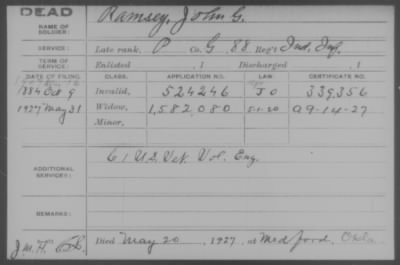 DEAD
NAME OF SOLDIER: Ramsey, John G.
SERVICE: Late rank, P Co. G, 88 Reg't Ind. Inf.
TERM OF SERVICE: Enlisted , 1 Discharged , 1
DATE OF FILING. CLASS. APPLICATION NO. LAW CERTIFICATE NO.
1884 Oct 9 Invalid, 524246 JO 339356
1927 May 31 Widow, 1,582,080 5-1-20 A9-14-27
Minor,
ADDITIONAL SERVICES: C 1 U.S. Vet. Vol. Eng.
REMARKS:
J.M.H. Died May 20, 1927, at Medford, Okla.